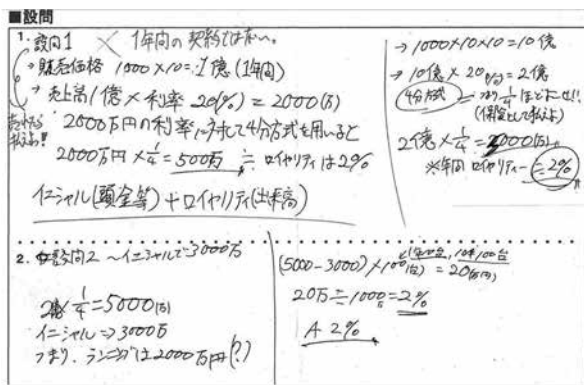 ■設問
1. 設問1 × 1年間の契約ではない。
→販売価格 1000×10=1億(1年間)
→売上高1億×利率20(%)=2000(万)
2000万円の利率に対して4分方式を用いると
2000万円×1/4=500万 ≒ ロイヤリティは2%
イニシャル(頭金等)+ロイヤリティ(出来高)
→1000×10×10=10億
→10億×20(%)=2億
4分方式
(保管として払えよ)
2億×1/4=5000(万)
※年間ロイヤリティー=2%
2. 設問2 ~イニシャルで3000万
2億×1/4=5000(万)
イニシャル⇒3000万
つまり、ランニングは2000万円(?)
(5000-3000)
=20(万円)
20万÷1000万=2%
A 2%